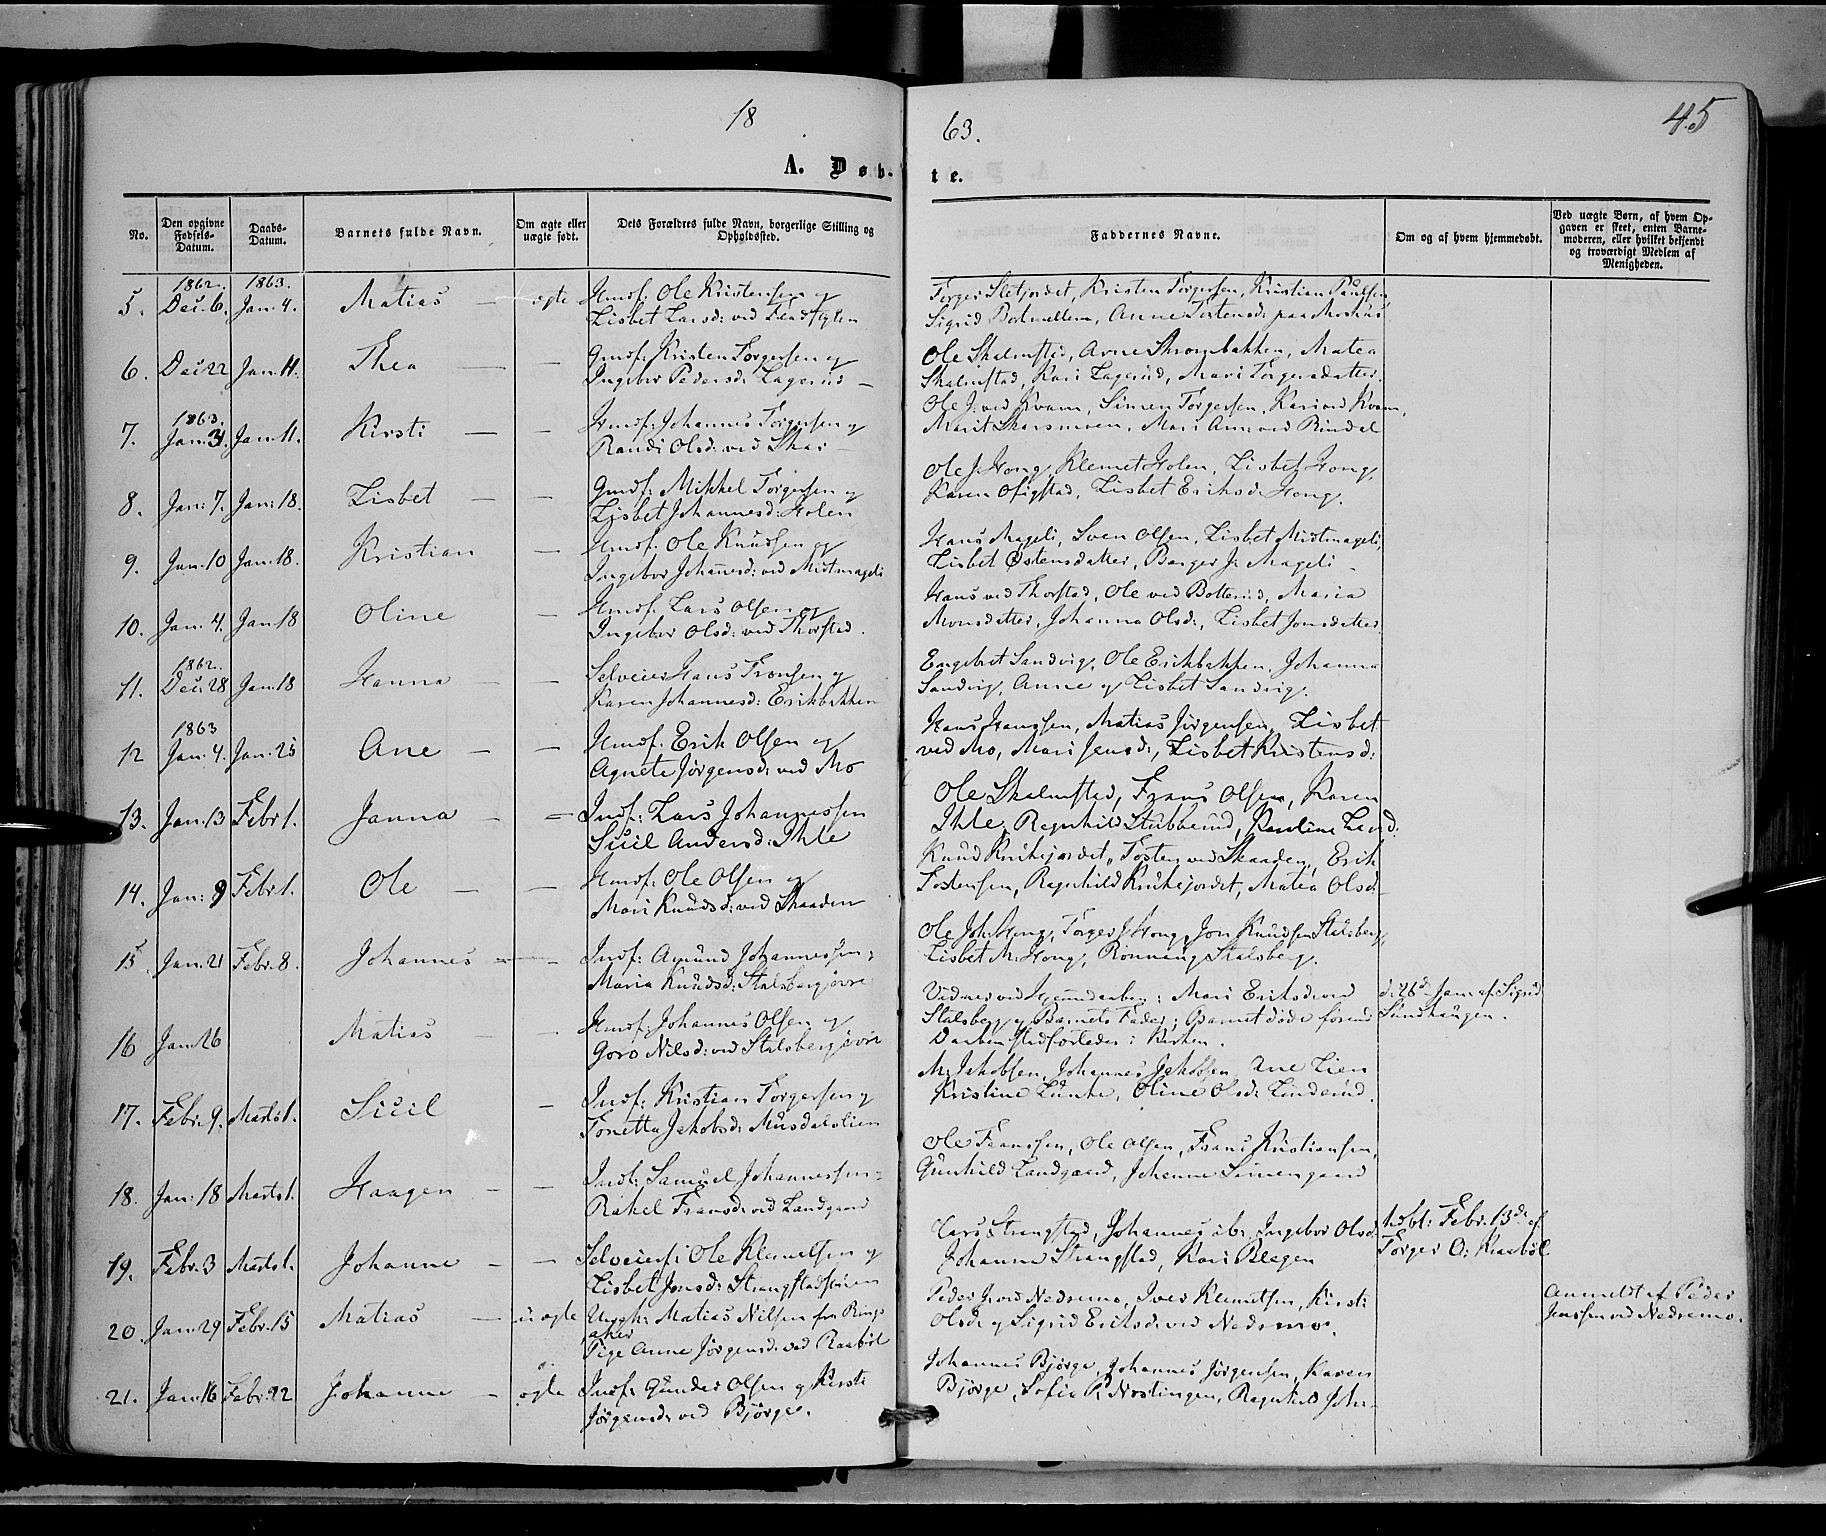 18
63.
45
A. Døb-
te.
No.
Den opgivne Fødsels-Datum.
Daabs-Datum.
Barnets fulde Navn.
Om ægte eller uægte født.
Dets Forældres fulde Navn, borgerlige Stilling og Opholdssted.
Faddernes Navne.
Om og af hvem hjemmedøbt.
Ved uægte Børn, af hvem Opgaven er skeet, enten Barnemoderen, eller hvilket bekjendt og troværdigt Medlem af Menigheden.
1862. 1863.
5. Dec. 6. Jan. 4. Matias — ægte Husmf: Ole Kristensen og
Lisbet Larsd: ved
Torger Sletjordet, Kristen Torgersen, Kristian Paulsen
Sigrid Botnellem, Anne Tostensd: paa
6. Dec 22 Jan. 11. Thea — — Gmdf: Kristen Torgersen og
Ingebor Pedersd: Lagerud —
Ole Skalmstad, Arne Skrombakken, Matea
Skalmstad, Kari Lagerud, Mari Torgersdatter.
1863.
7. Jan: 3. Jan. 11. Kirsti — — Husmf: Johannes Torgersen og
Randi Olsd: ved Skar —
Ole J: ved Kvam, Simen Torgersen, Kari ved Kvam,
Marit Skarsmoen, Mari Am: ved Rindal
8. Jan: 7. Jan: 18. Lisbet — — Gmdf: Mikkel Torgersen og
Lisbet Johannesd: Holen
Ole J. Hong, Klemet Holen, Lisbet Hong,
Karen Ofigstad, Lisbet Eriksd: Hong.
9. Jan. 10 Jan. 18. Kristian — Husmf: Ole Knudsen og
Ingebor Johannesd: ved Midtmageli
Hans Mageli, Sven Olsen, Lisbet Midtmageli,
Lisbet Østensdatter, Berger J: Mageli —
10. Jan. 4. Jan 18 Oline — Husmf: Lars Olsen og
Ingebor Olsd: ved Thorstad.
Hans ved Thorstad, Ole ved Botterud, Maria
Monsdatter, Johanna Olsd:, Lisbet Jonsdatter
1862.
11. Dec. 28 Jan. 18 Hanna — — Selveier Hans Tronsen og
Karen Johannesd: Erikbakken
Engebret Sandvig, Ole Erikbakken, Johanna
Sandvig, Anne og Lisbet Sandvig.
1863
12 Jan. 4. Jan. 25 Ane — — Husmf. Erik Olsen og
Agnete Jørgensd: ved Mo
Hans Hanssen, Matias Jørgensen, Lisbet
ved Mo, Mari Jensd:, Lisbet Kristensd:
13. Jan. 13 Febr 1. Janna — — Indf: Lars Johannessen
Sicil Andersd: Ihle
Ole Skalmstad, Frans Olsen, Karen
Ihle, Regnhild Stubberud, Karoline
14. Jan: 9 Febr 1. Ole — — Husmf: Ole Olsen og
Mari Knudsd: ved Skaaden
Knud Kirkejordet, Tosten ved Skaaden, Erik
Tostensen, Ragnhild Kirkejordet, Matea Olsd: —
15. Jan. 21 Febr. 8. Johannes — — Indf: Amund Johannessen,
Maria Knudsd: Stalsberg øvre
Ole Joh: Hong, Torger J Hong, Jon Knudsen Stalsberg,
Lisbet M. Hong, Rønnaug Stalsberg.
16 Jan. 26 Matias — — Husmf: Johannes Olsen og
Goro Nilsd: ved Stalsberg øvre
Vidner ved Hjemmedaaben: Mari Eriksd: ved
Stalsberg og Barnets Fader; Barnet døde forend
Daaben stadfæstedes i Kirken.
d: 26d Jan: af Sigrid
Sandhaugen.
17. Febr. 9. Marts 1. Sicil — Indf: Kristian Torgersen og
Tonetta Jakobsd: Musdalslien
M: Jakobsen, Johannes Jakobsen, Ane Lien
Kristine Lunke, Oline Olsd: Linderud.
18. Jan: 18 Marts 1. Haagen — — Indf: Samuel Johannessen
Rakel Fransd: ved Landgaard
Ole Franssen, Ole Olsen, Frans Kristiansen,
Gunhild Landgaard, Johanne Simengaard
19. Febr. 3 Marts 1. Johanne — — Selveierf: Ole Klemetsen og
Lisbet Jonsd: Strangstadstuen
Lars Strangstad, Johannes ib:, Ingebor Olsd:
Johanne Strangstad, Kari Blegen
hdbt: Febr. 13de af
Torger O: Kraabøl
20. Jan: 29 Febr. 15 Matias — uægte Ungk: Matias Nilsen fra Ringsaker
Pige Anne Jørgensd: ved Raabøl
Peder J: ved Nedremo, Iver Klemetsen, Kirsti
Olsd: og Sigrid Eriksd: ved Nedremo.
Anmeldt af Peder
Jenssen ved Nedremo.
21. Jan: 16 Febr. 22 Johanne — ægte Indf: Gunder Olsen og Kirsti
Jørgensd: ved Bjørge.
Johannes Bjørge, Johannes Jørgensen, Karen
Bjørge, Sofie P. Norstingen, Ragnhild Joh:—